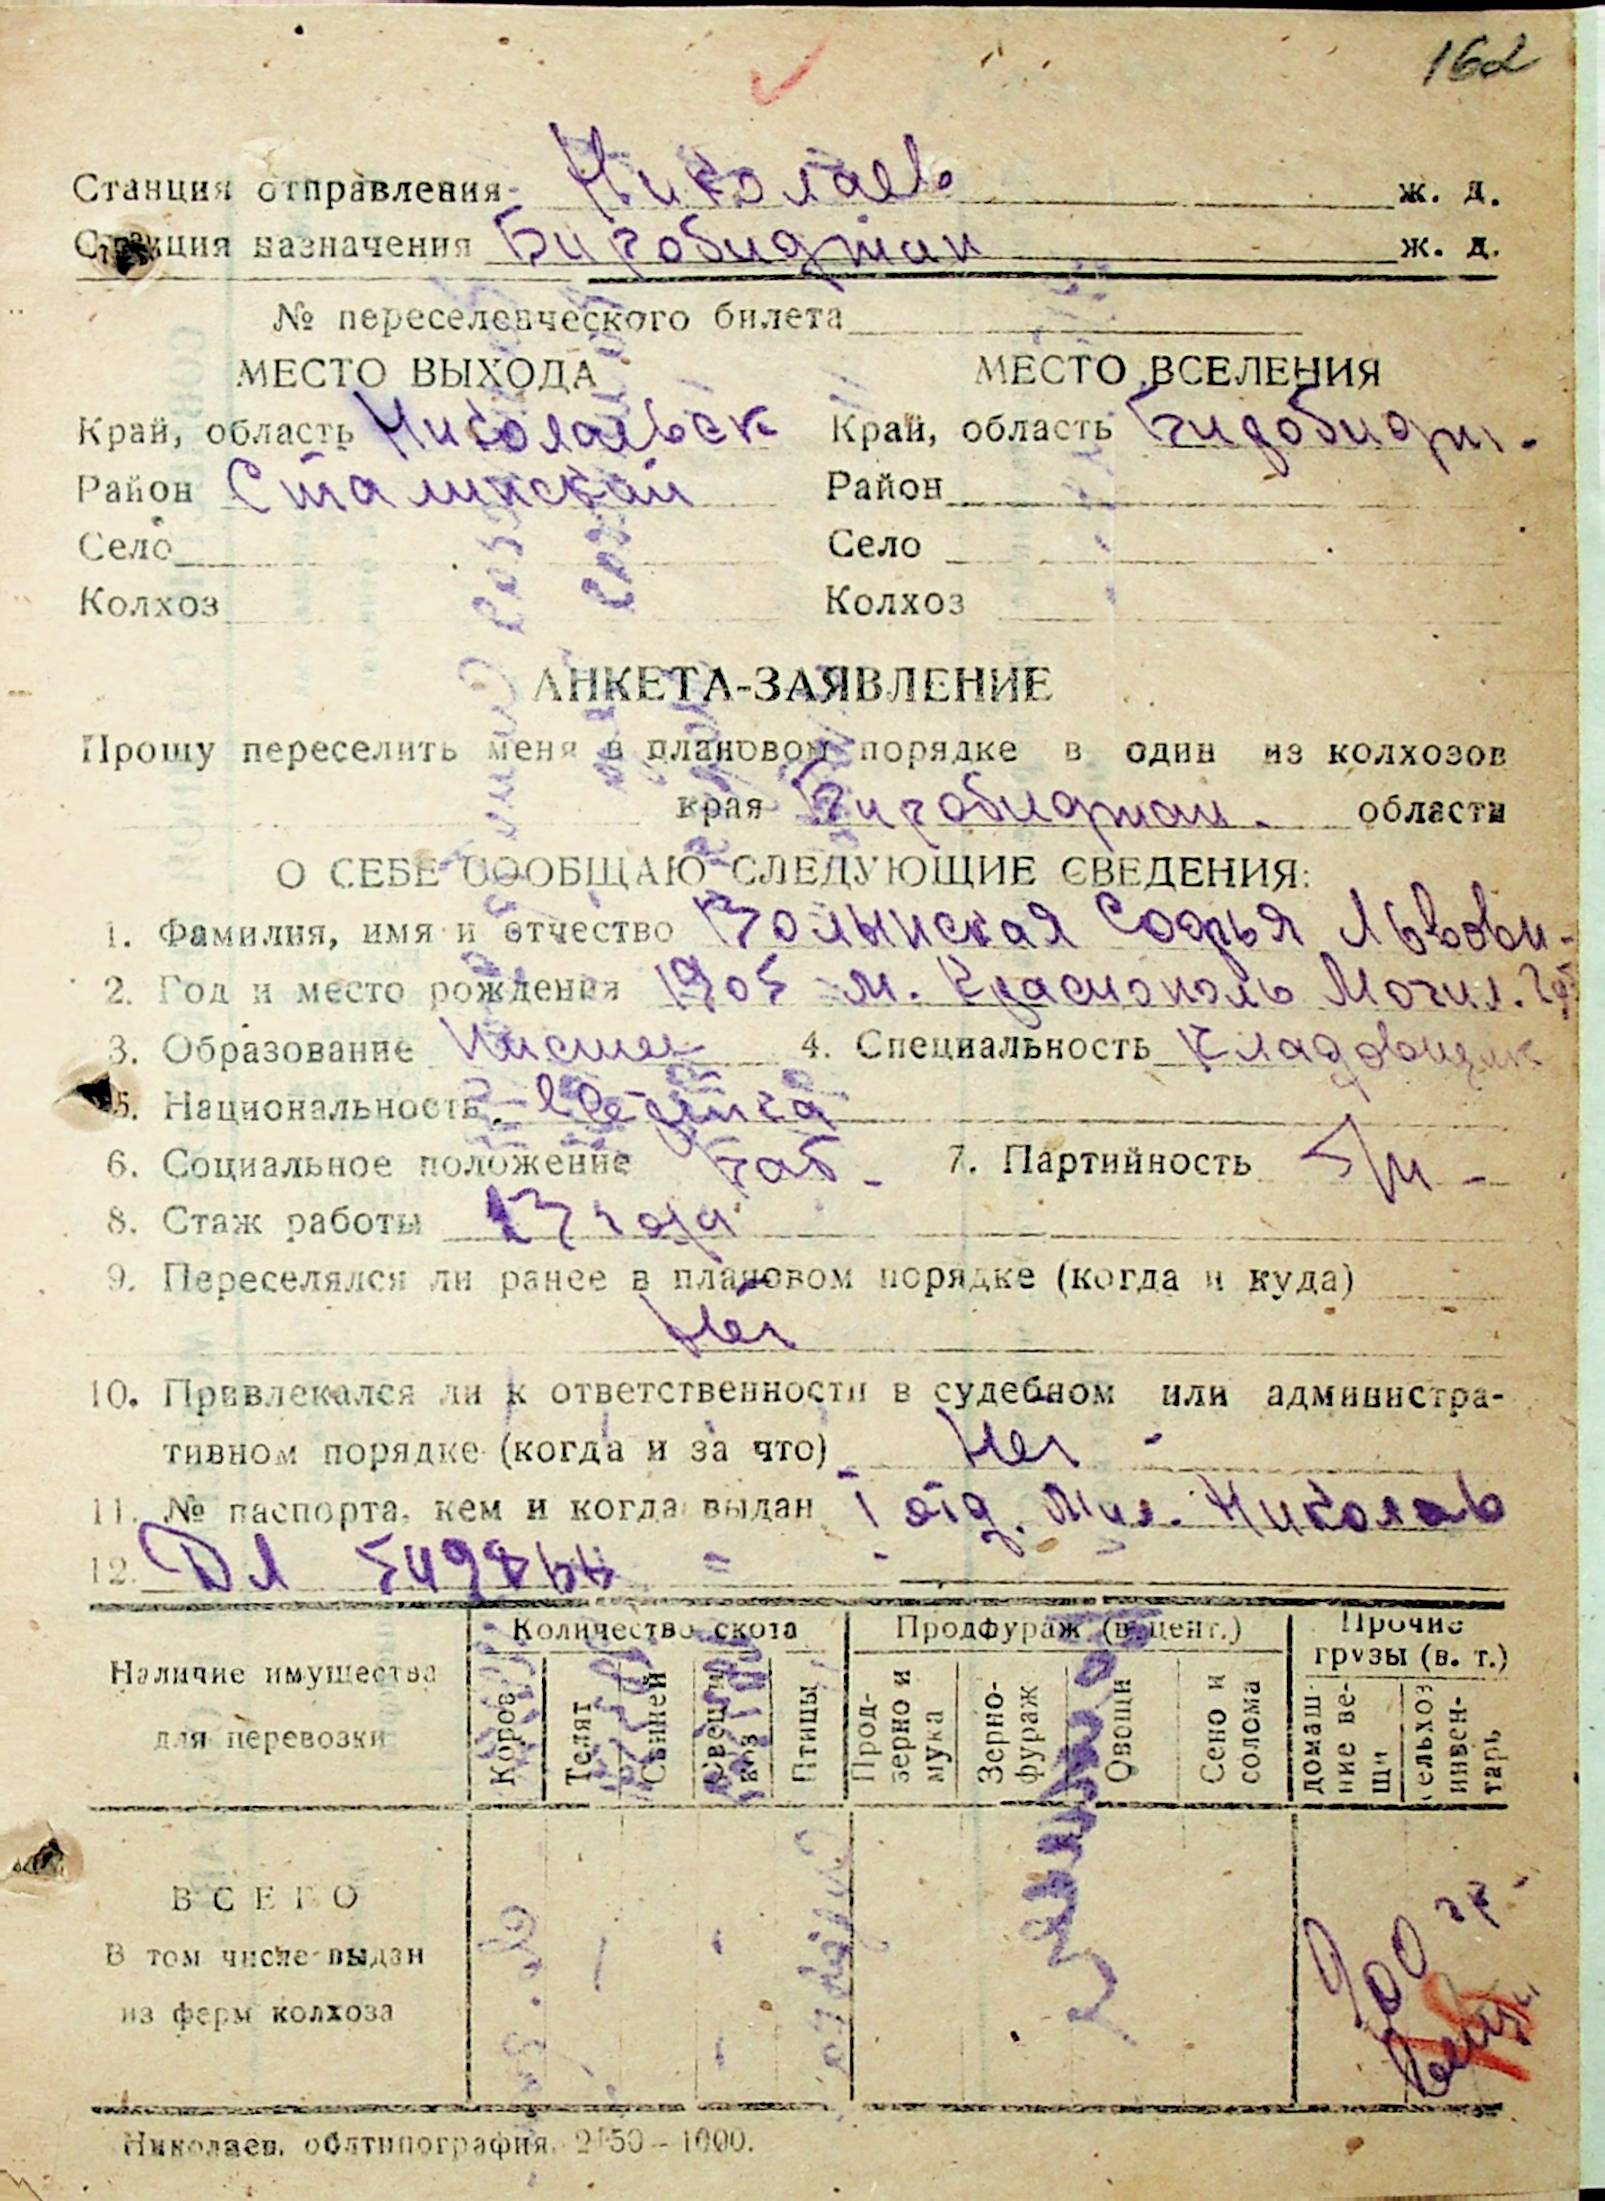 162
Станция отправления Николаев ж. д.
Станция назначения Биробиджан ж. д.
№ переселенческого билета
МЕСТО ВЫХОДА МЕСТО ВСЕЛЕНИЯ
Край, область Николаевск Край, область
Район Сталинский Район
Село Село
Колхоз Колхоз
АНКЕТА-ЗАЯВЛЕНИЕ
Прошу переселить меня в плановом порядке в один из колхозов
края Биробиджан. области
О СЕБЕ СООБЩАЮ СЛЕДУЮЩИЕ СВЕДЕНИЯ:
1. Фамилия, имя и отчество Волынская Софья Львовн-
2. Год и место рождения 1905 м. Краснополь Могил. губ
3. Образование Низшее 4. Специальность Кладовщик
5. Национальность
6. Социальное положение Раб- 7. Партийность Б/п-
8. Стаж работы 23 года
9. Переселялся ли ранее в плановом порядке (когда и куда)
Нет
10. Привлекался ли к ответственности в судебном или администра-
тивном порядке (когда и за что) Нет -
11. № паспорта, кем и когда выдан I отд. Мил. Николаев
12. ДЛ
Наличие имущества для перевозки
Количество скота Продфураж (в цент.) Прочие грузы (в. т.)
Коров Телят Свиней Овец и коз Птицы Прод-зерно и мука Зерно-фураж Овощи Сено и солома домаш-ние ве-щи сельхоз инвен-тарь
ВСЕГО
В том числе выдан
из ферм колхоза
Николаев, облтипография, 2150—1000.